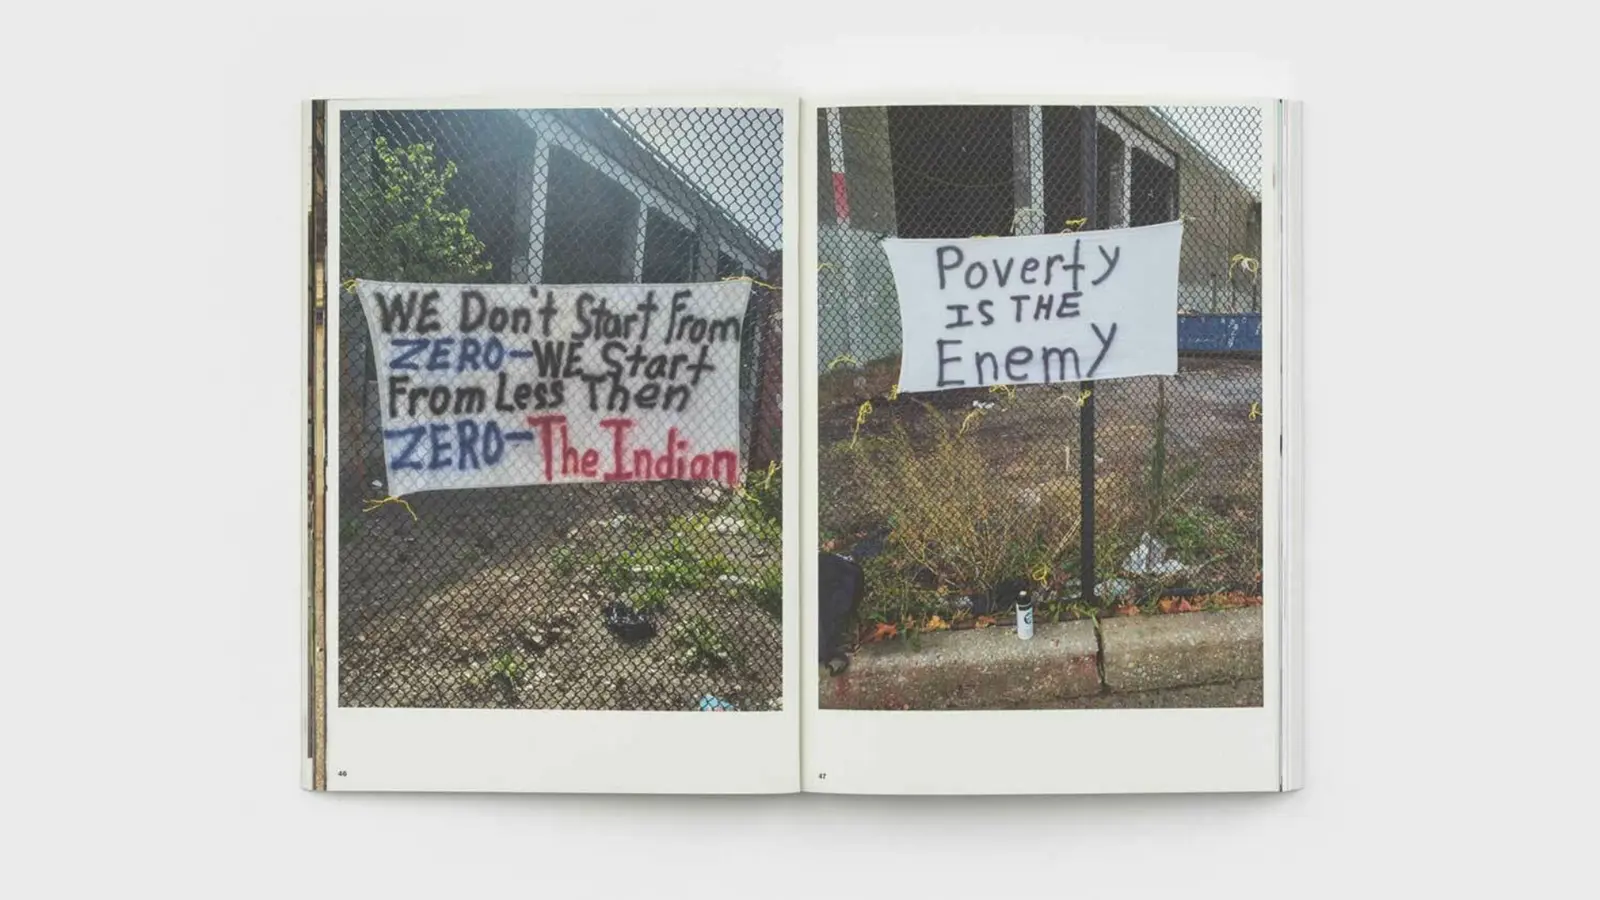 WE Don't Start From
ZERO-WE Start
From Less Then
ZERO-The Indian
46
Poverty
IS THE
Enemy
47